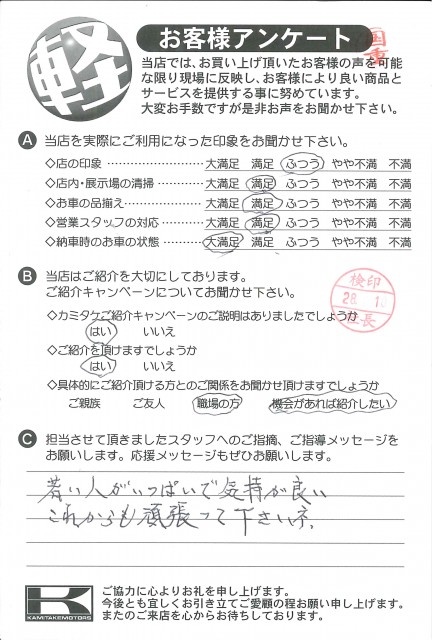 軽
お客様アンケート
国重
当店では、お買い上げ頂いたお客様の声を可能
な限り現場に反映し、お客様により良い商品と
サービスを提供する事に努めています。
大変お手数ですが是非お声をお聞かせ下さい。
A 当店を実際にご利用になった印象をお聞かせ下さい。
◇店の印象 ………………… 大満足 満足 ふつう やや不満 不満
◇店内・展示場の清掃 ……… 大満足 満足 ふつう やや不満 不満
◇お車の品揃え ……………… 大満足 満足 ふつう やや不満 不満
◇営業スタッフの対応 ……… 大満足 満足 ふつう やや不満 不満
◇納車時のお車の状態 ……… 大満足 満足 ふつう やや不満 不満
B 当店はご紹介を大切にしてあります。
ご紹介キャンペーンについてお聞かせ下さい。
検印
28. 10
社長
◇カミタケご紹介キャンペーンのご説明はありましたでしょうか
はい いいえ
◇ご紹介を頂けますでしょうか
はい いいえ
◇具体的にご紹介頂ける方とのご関係をお聞かせ頂けますでしょうか
ご親族 ご友人 職場の方 機会があれば紹介したい
C 担当させて頂きましたスタッフへのご指摘、ご指導メッセージを
お願いします。応援メッセージもぜひお願いします。
若い人がいっぱいで気持が良い
これからも頑張って下さいネ.
K
KAMITAKEMOTORS
ご協力に心よりお礼を申し上げます。
今後とも宜しくお引き立てご愛顧の程お願い申し上げます。
またのご来店を心からお待ちしております。